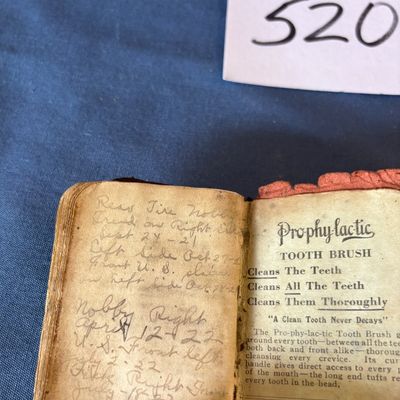 520
Rear Tire Nobby
Tread on Right Side
Sept 24-21
Left Side Oct 27-2
Front U.S. placed
on left side Oct.
Nobby Right
April 12-22
U.S. Front left
22
Right
Pro-phy-lac-tic
TOOTH BRUSH
Cleans The Teeth
Cleans All The Teeth
Cleans Them Thoroughly
"A Clean Tooth Never Decays"
The Pro-phy-lac-tic Tooth Brush g
around every tooth—between all the tee
both back and front alike—thorou
cleansing every crevice. Its cur
handle gives direct access to every p
of the mouth—the long end tufts re
every tooth in the head.